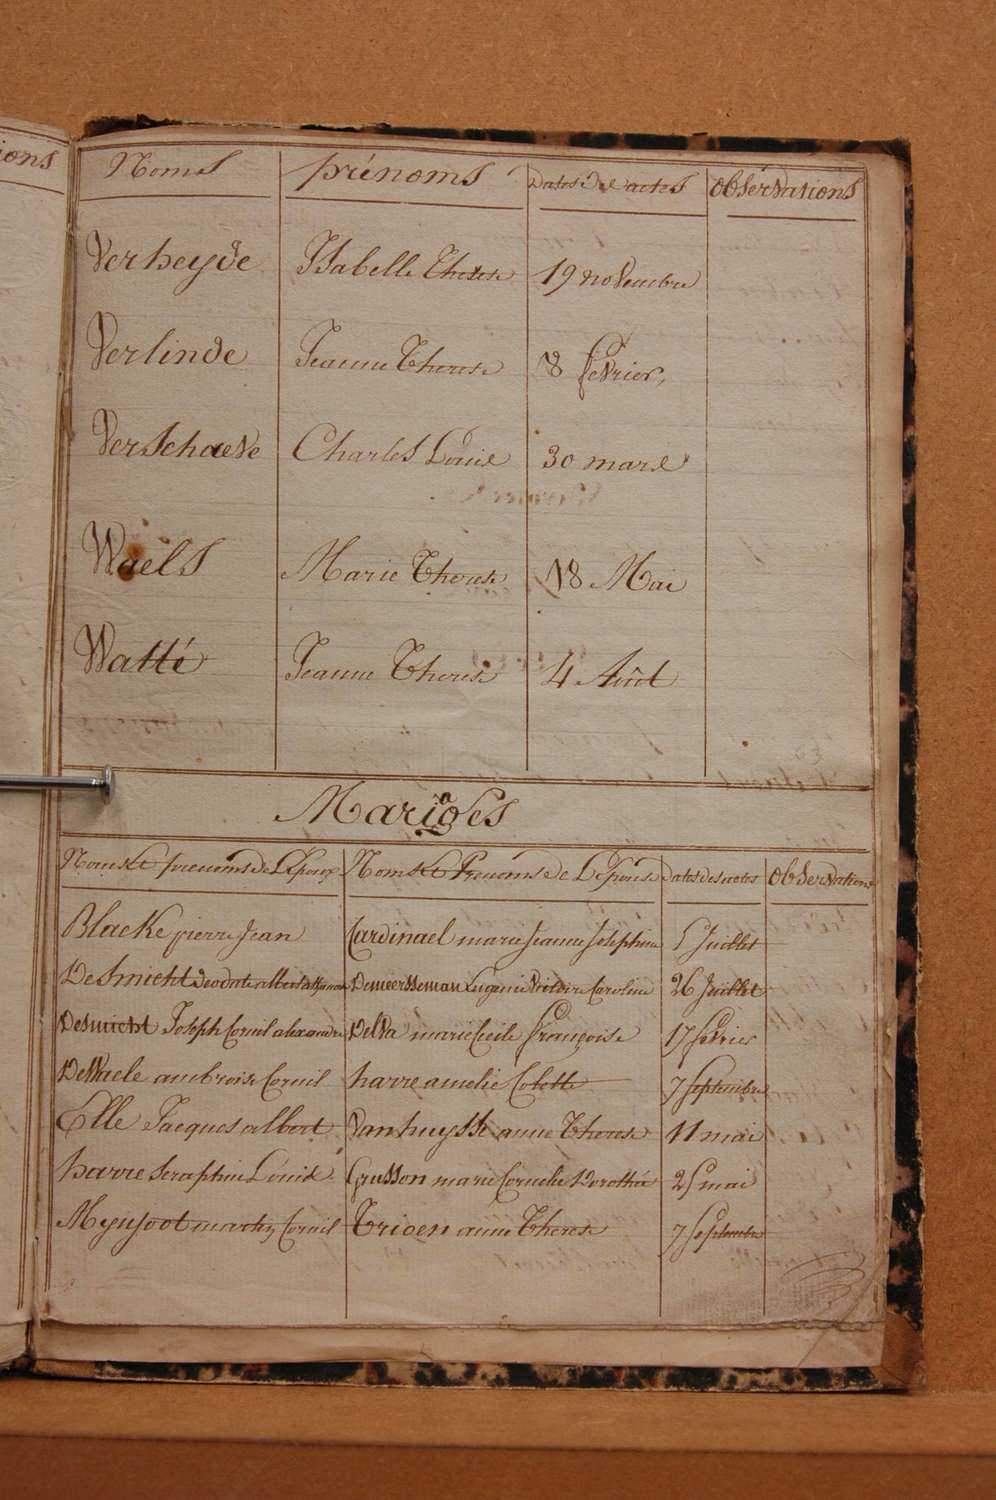 ions
Noms prénoms Dates Des actes Observations
Verheyde Isabelle Therese 19 novembre
Verlinde Jeanne Therese 8 fevrier,
Verschaeve Charles Louis 30 mars
Waels Marie Therese 18 Mai
Watté Jeanne Therese 4 Août
63
Mariages
Noms et prenoms de L'Epoux Noms et Prenoms de L'Epouse Dates des actes Observations
Blaeke pierre Jean Cardinael marie Jeanne Josephine 5 Juillet
Desmicht deodate albert Demeersseman Eugenie Victoire Caroline 26 Juillet
Desmicht Joseph Cornil alexandre Delva marie Cecile françoise 17 fevrier
DeWaele ambroise Cornil harre amelie Colette 7 Septembre
Elle Jacques albert Vanhuysse anne Therese 11 mai
harre Seraphin Louis Crusson marie Cornelie Dorothée 25 mai
martin Cornil Trioen anne Therese 7 Septembre